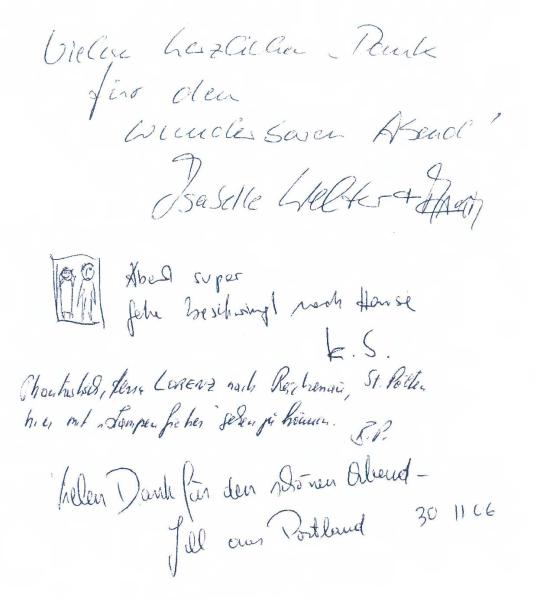 Vielen herzlichen Dank
für den
wunderbaren Abend!
Isabelle Welter +
Abend super
gehe beschwingt nach Hause
K. S.
Phantastisch, Herrn LORENZ nach Reichenau, St. Pölten
hier mit "Lampenfieber" sehen zu können.
B.P.
Vielen Dank für den schönen Abend –
Jill aus Portland
30 11 06